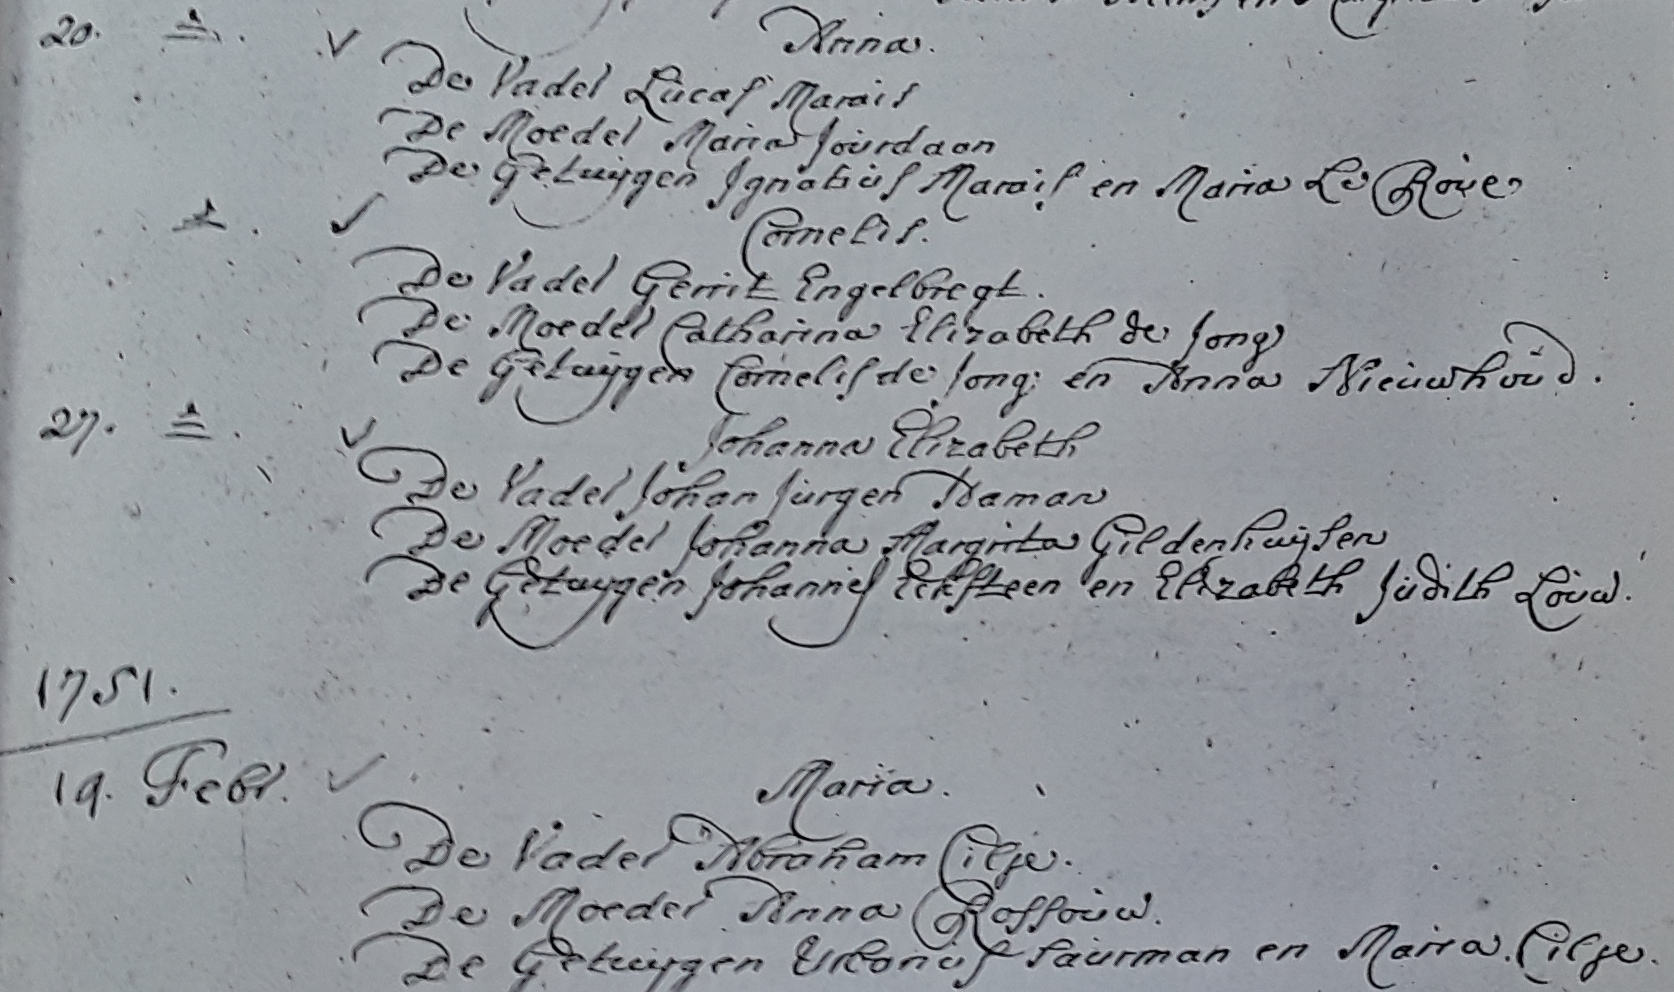 20. Anna.
De Vader Lucas Marais
De Moeder Maria Jourdaan
De Getuijgen Ignatius Marais en Maria Le Roúe
Cornelis.
De Vader Gerrit Engelbregt.
De Moeder Catharina Elizabeth de Jong
De Getuijgen Cornelis de Jong: en Anna Nieuwhoúd.
27. Johanna Elizabeth
De Vader Johan Jurgen Haman
De Moeder Johanna Margrita Gildenhuijsen
De Getuijgen Johannes Eksteen en Elizabeth Judith Loúw.
1751.
19. Febr. Maria.
De Vader Abraham Cilje.
De Moeder Anna Rossoúw.
De Getuijgen Saurman en Maria Cilje.